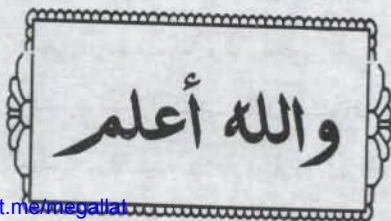 والله أعلم
t.me/megallat